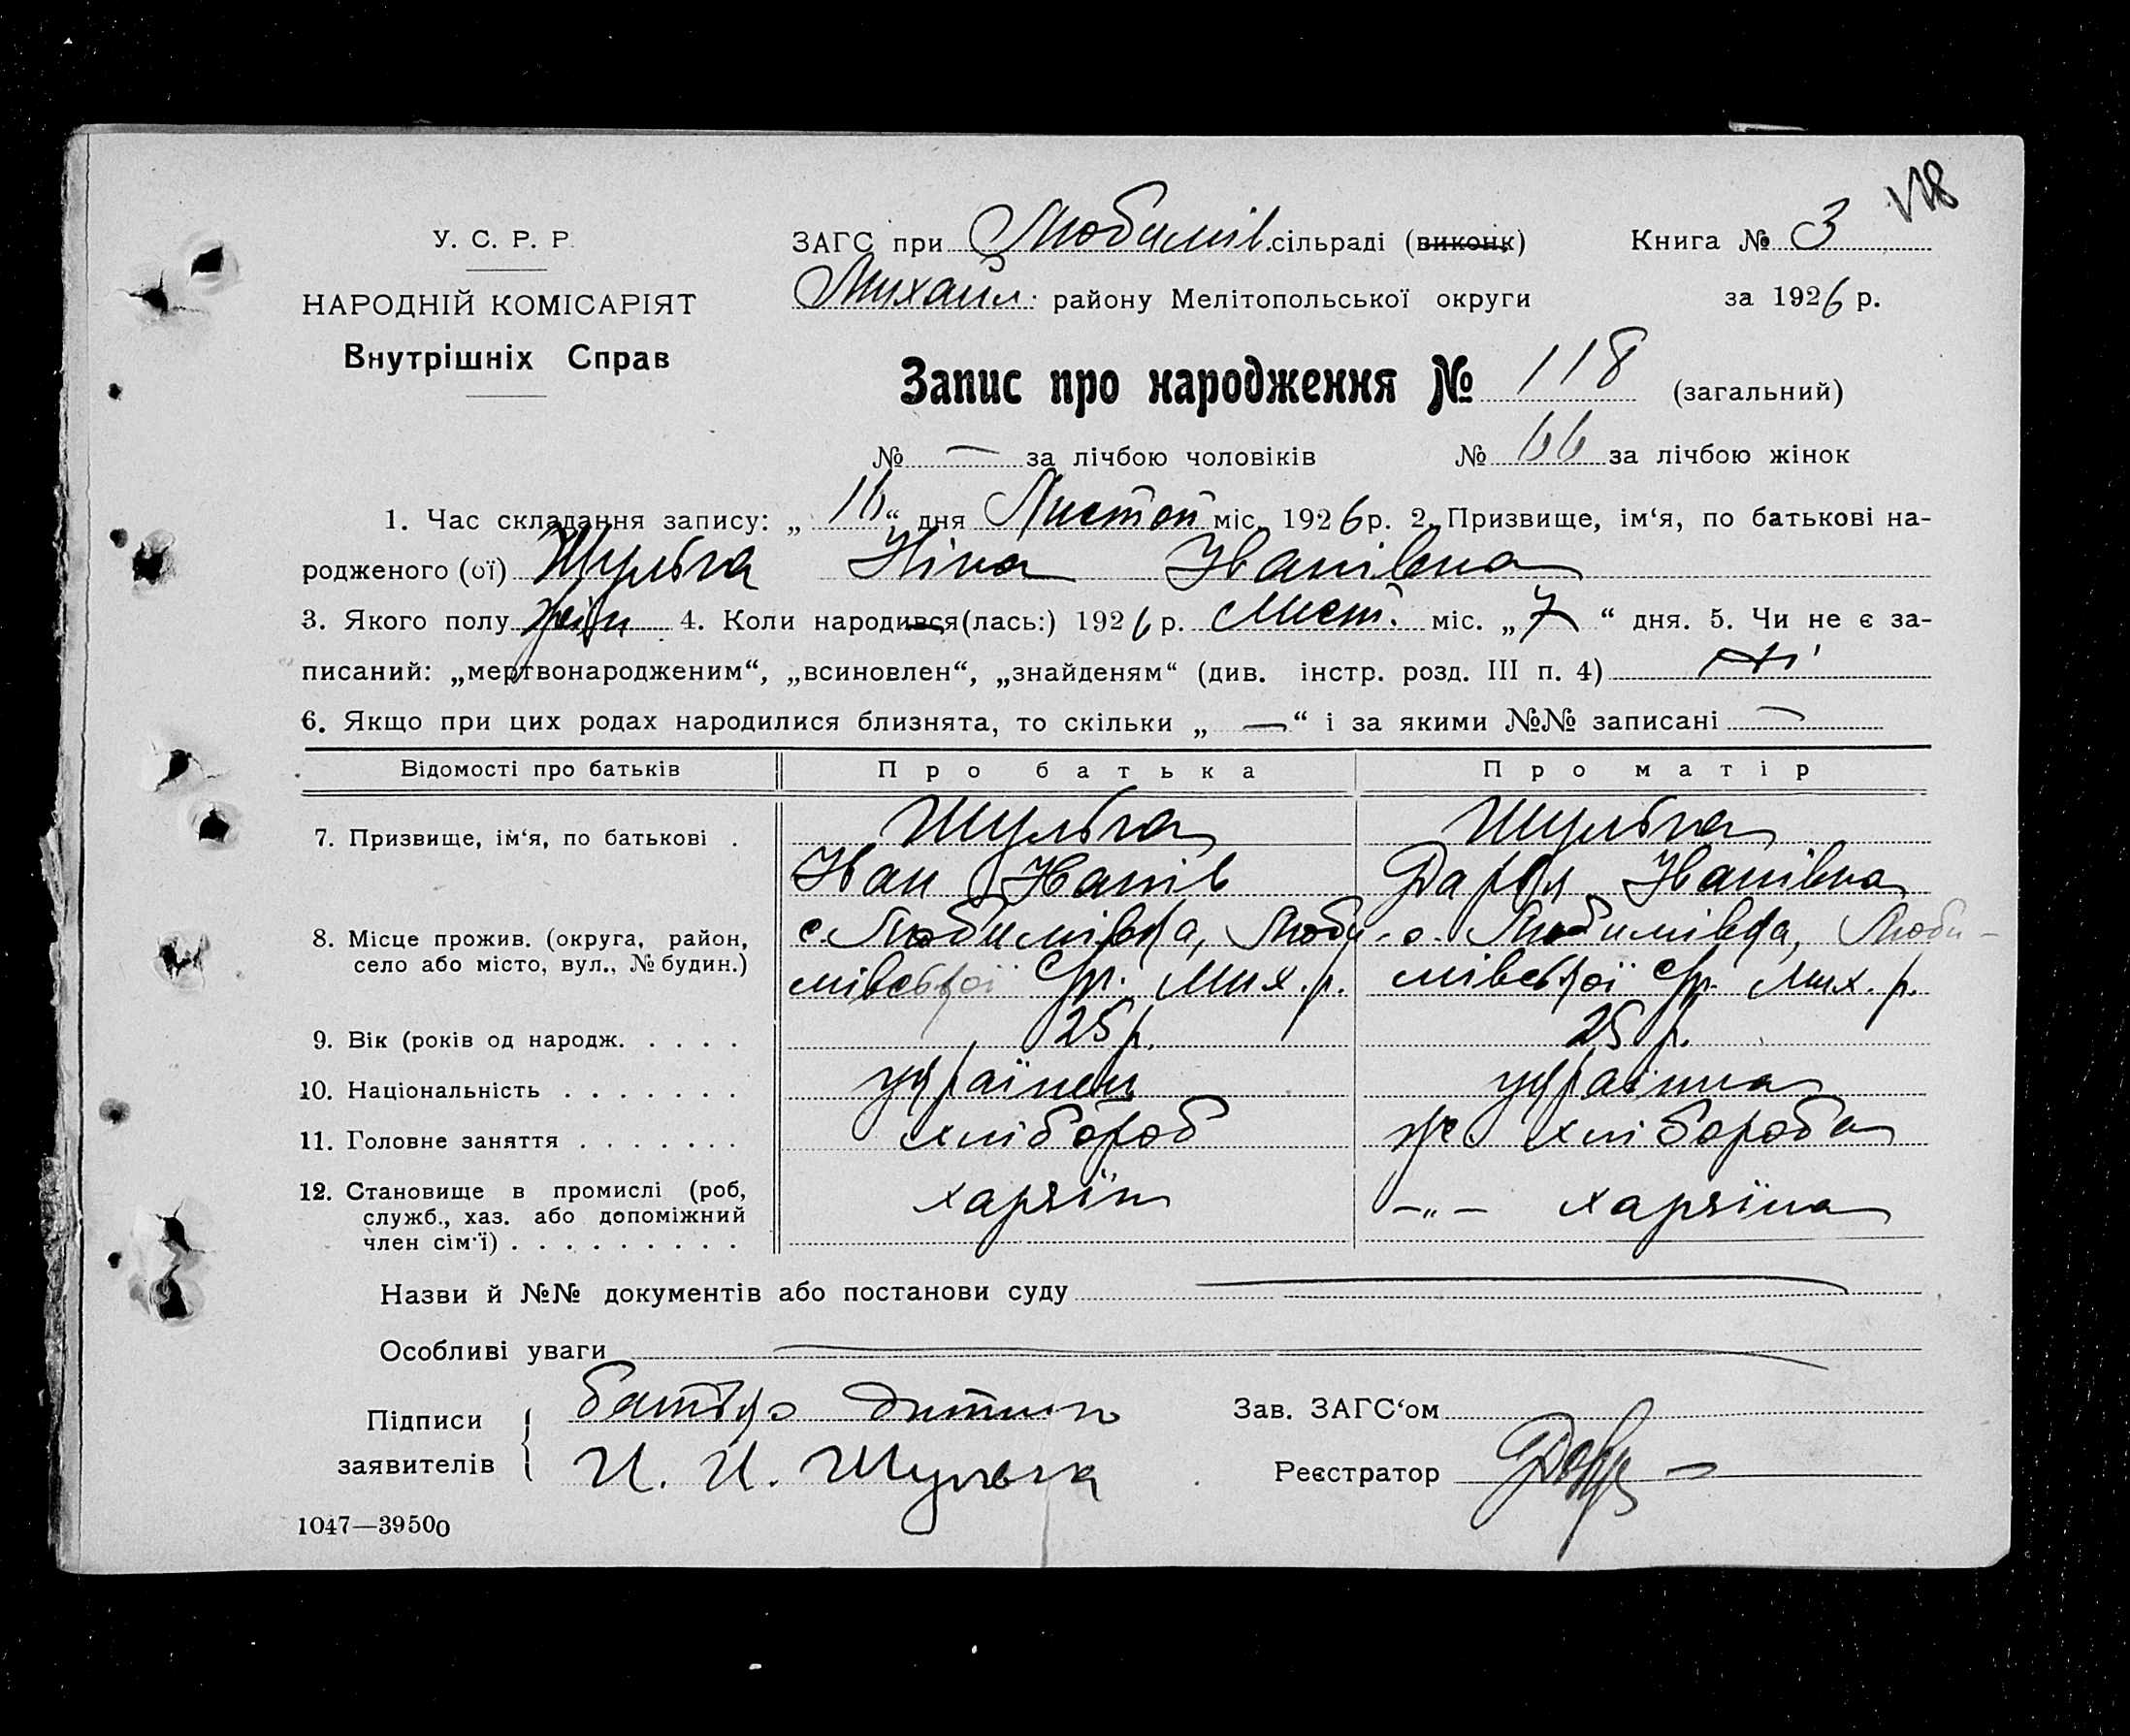 118
У. С. Р. Р.
НАРОДНІЙ КОМІСАРІЯТ
Внутрішніх Справ
ЗАГС при Любимів. сільраді (виконк) Книга № 3
Михайл. району Мелітопольської округи за 1926 р.
Запис про народження № 118 (загальний)
№ — за лічбою чоловіків № 66 за лічбою жінок
1. Час складання запису: „ 16 “ дня Листоп міс. 1926 р. 2. Призвище, ім‘я, по батькові на-
родженого (ої) Шульга Ніна Іванівна
3. Якого полу жін 4. Коли народився(лась:) 1926 р. Лист. міс. „ 7 “ дня. 5. Чи не є за-
писаний: „мертвонародженим“, „всиновлен“, „знайденям“ (див. інстр. розд. III п. 4) Ні
6. Якщо при цих родах народилися близнята, то скільки „ — “ і за якими №№ записані —
Відомості про батьків Про батька Про матір
7. Призвище, ім‘я, по батькові . Шульга Шульга
Іван Іванів Дарья Іванівна
8. Місце прожив. (округа, район, с. Любимівка, Люби- с. Любимівка, Люби-
село або місто, вул., № будин.) мівської с/р. Мих. р. мівської с/р. Мих. р.
9. Вік (років од народж. . . . . 25 р. 25 р.
10. Національність . . . . . . . українець українка
11. Головне заняття . . . . . . . хлібороб же хлібороба
12. Становище в промислі (роб, хазяїн –„– хазяїна
служб., хаз. або допоміжний
член сім‘ї) . . . . . . . . .
Назви й №№ документів або постанови суду —
Особливі уваги —
Підписи батько дитини Зав. ЗАГС‘ом
заявителів И. И. Шульга Реєстратор
1047—39500